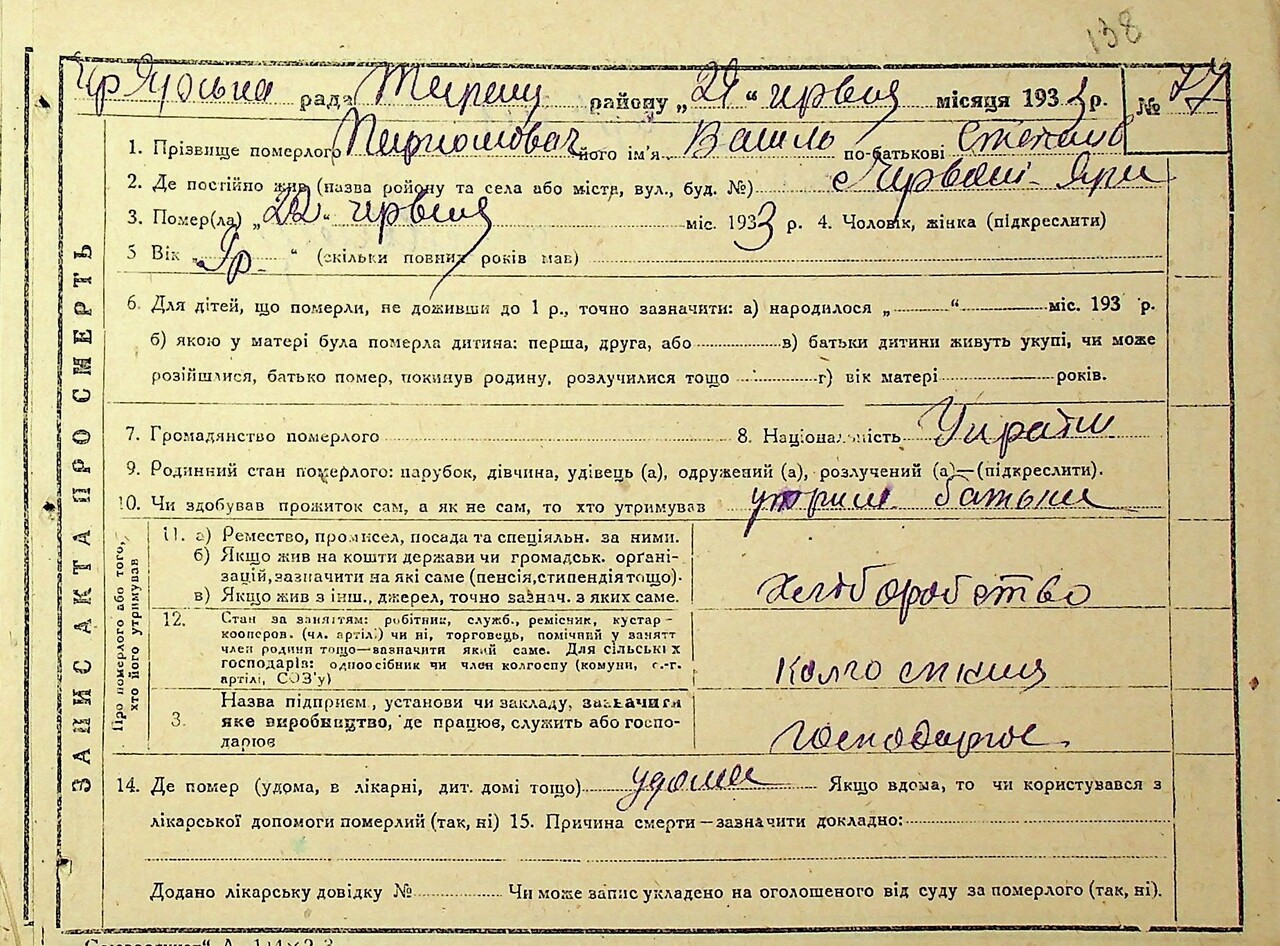 138
рада район у „ 22 “ червня місяця 1933 р. № 77
1. Прізвище померлого його ім'я Василь по-батькові Степано
2. Де постійно жив (назва району та села або міста, вул., буд. №) с Червоні-Яри
3. Помер(ла) „22“ червня міс. 1933 р. 4. Чоловік, жінка (підкреслити)
5 Вік „ р. “ (скільки повних років мав)
6. Для дітей, що померли, не доживши до 1 р., точно зазначити: а) народилося „ “ міс. 193 р.
б) якою у матері була померла дитина: перша, друга, або в) батьки дитини живуть укупі, чи може
розійшлися, батько помер, покинув родину, розлучилися тощо г) вік матері років.
7. Громадянство померлого 8. Національність
9. Родинний стан померлого: парубок, дівчина, удівець (а), одружений (а), розлучений (а)—(підкреслити).
10. Чи здобував прожиток сам, а як не сам, то хто утримував утрим. батьки
ЗАПИС АКТА ПРО СМЕРТЬ
Про померлого або того, хто його утримував
11. а) Ремество, промисел, посада та спеціяльн. за ними.
б) Якщо жив на кошти держави чи громадськ. орґані-
зацій, зазначити на які саме (пенсія, стипендія тощо).
в) Якщо жив з інш., джерел, точно зазнач. з яких саме.
Хліборобство
12. Стан за заняттям: робітник, служб., ремісник, кустар-
кооперов. (чл. артілі) чи ні, торговець, помічний у занятт
член родини тощо—вазначити який саме. Для сільських
господарів: одноосібник чи член колгоспу (комуни, с.-г.
артілі, СОЗ'у)
3. Назва підприєм., установи чи закладу, зазначити
яке виробництво, де працює, служить або госпо-
дарює
14. Де помер (удома, в лікарні, дит. домі тощо) удома Якщо вдома, то чи користувався з
лікарської допомоги померлий (так, ні) 15. Причина смерти—зазначити докладно:
Додано лікарську довідку № Чи може запис укладено на оголошеного від суду за померлого (так, ні).